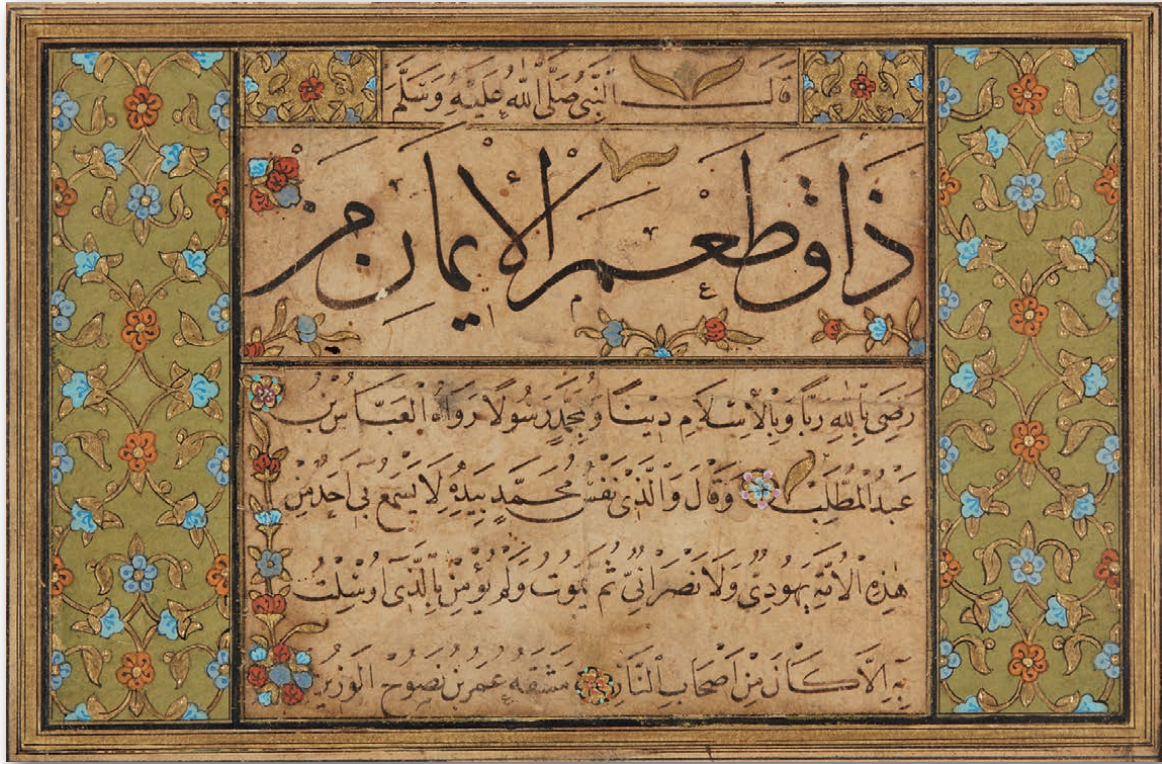 قَالَ النَّبِيُّ صَلَّى اللّٰهُ عَلَيْهِ وَسَلَّمَ
ذَاقَ طَعْمَ الْأِيمَانِ مَنْ
رَضِيَ بِاللّٰهِ رَبًّا وَبِالْاِسْلَامِ دِينًا وَبِمُحَمَّدٍ رَسُولًا رَوَاهُ الْعَبَّاسُ بْنُ
عَبْدُ الْمُطَّلِبْ وَقَالَ وَالَّذِى نَفْسُ مُحَمَّدٍ بِيَدِهِ لَا يَسْمَعُ بِى اَحَدٌ مِنْ
هٰذِهِ الْاُمَّةِ يَهُودِىٌّ وَلَا نَصْرَانِىٌّ ثُمَّ يَمُوتُ وَلَمْ يُؤْمِنْ بِالَّذِى اُرْسِلْتُ
بِهِ اِلَّا كَانَ مِنْ اَصْحَابِ النَّارِ مَشَقَهُ عُمَر بن نَصُوح الوَزِير